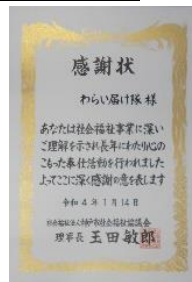 感謝状
わらい届け隊 様
あなたは社会福祉事業に深い
ご理解を示され長年にわたり心の
こもった奉仕活動を行われました
よってここに深く感謝の意を表します
令和4年1月14日
社会福祉法人神戸市社会福祉協議会
理事長 玉田敏郎